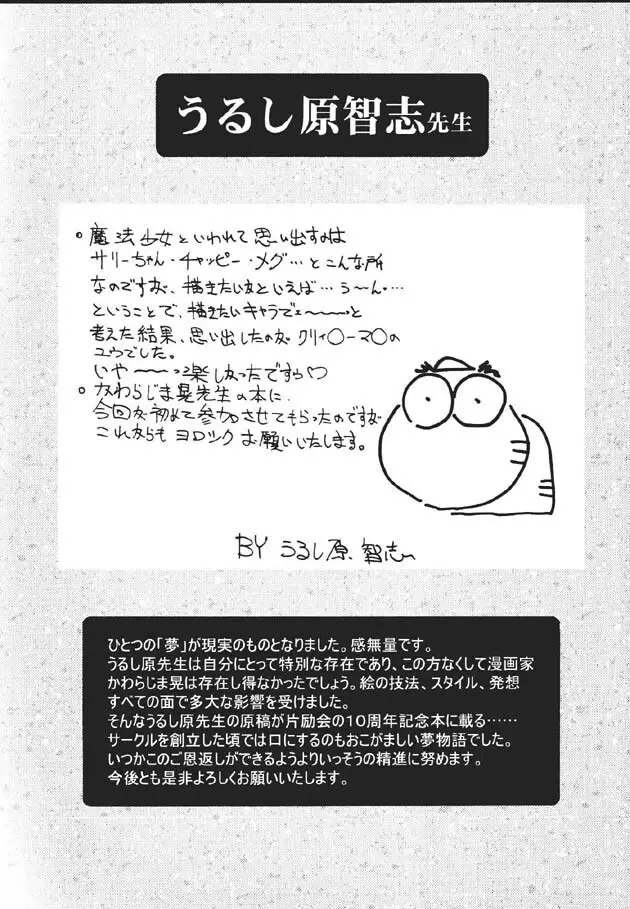 うるし原智志先生
。魔法少女といわれて思い出すのは
サリーちゃん・チャッピー・メグ…とこんな所
なのですが、描きたい女といえば…う〜ん・…
ということで、描きたいキャラでェ〜〜〜っと
考えた結果、思い出したのが クリィ○ーマ○の
ユウでした。
いや〜〜〜っ楽しかったですゥ♡
。かわらじま晃先生の本に、
今回が初めて参加させてもらったのですが
これからも ヨロシク お願いいたします。
BY うるし原.智志
ひとつの「夢」が現実のものとなりました。感無量です。
うるし原先生は自分にとって特別な存在であり、この方なくして漫画家
かわらじま晃は存在し得なかったでしょう。絵の技法、スタイル、発想
すべての面で多大な影響を受けました。
そんなうるし原先生の原稿が片励会の10周年記念本に載る……
サークルを創立した頃では口にするのもおこがましい夢物語でした。
いつかこのご恩返しができるようよりいっそうの精進に努めます。
今後とも是非よろしくお願いいたします。